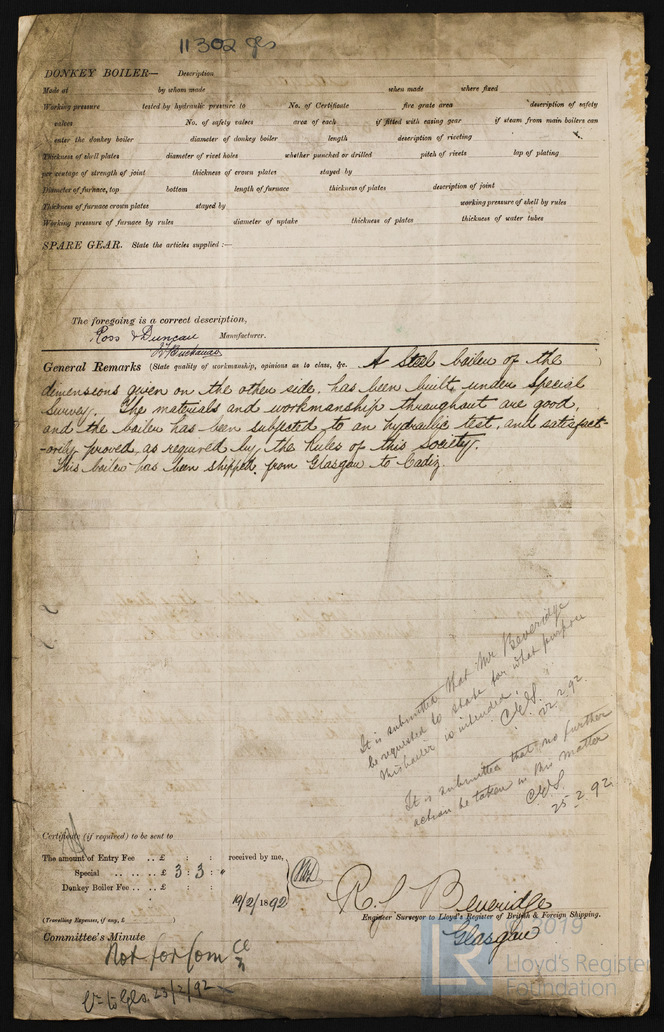 11302 gls
DONKEY BOILER— Description
Made at by whom made when made where fixed
Working pressure tested by hydraulic pressure to No. of Certificate fire grate area description of safety
valves No. of safety valves area of each if fitted with easing gear if steam from main boilers can
enter the donkey boiler diameter of donkey boiler length description of riveting
Thickness of shell plates diameter of rivet holes whether punched or drilled pitch of rivets lap of plating
per centage of strength of joint thickness of crown plates stayed by
Diameter of furnace, top bottom length of furnace thickness of plates description of joint
Thickness of furnace crown plates stayed by working pressure of shell by rules
Working pressure of furnace by rules diameter of uptake thickness of plates thickness of water tubes
SPARE GEAR. State the articles supplied :—
The foregoing is a correct description,
Ross & Duncan Manufacturer.
Buchanan
General Remarks (State quality of workmanship, opinions as to class, &c. A Steel boiler of the
dimensions given on the other side, has been built, under Special
Survey. The materials and workmanship throughout are good,
and the boiler has been subjected to an hydraulic test, and satisfact-
-orily proved, as required by the Rules of this Society.
This boiler has been shipped, from Glasgow to Cadiz.
It is submitted that Mr Beveridge
be requested to state for what purpose
this boiler is intended.
22.2.92.
It is submitted that no further
action be taken in this matter
25-2.92.
Certificate (if required) to be sent to
The amount of Entry Fee .. £ : : received by me,
Special .. .. .. £ 3 : 3 : "
Donkey Boiler Fee .. .. £ : : 19/2/1892
(Travelling Expenses, if any, £ )
R. S. Beveridge
Engineer Surveyor to Lloyd's Register of British & Foreign Shipping.
Glasgow
Committee's Minute
Not for Com
to Gls. 23/2/92
2019
LR
Lloyd's Register
Foundation